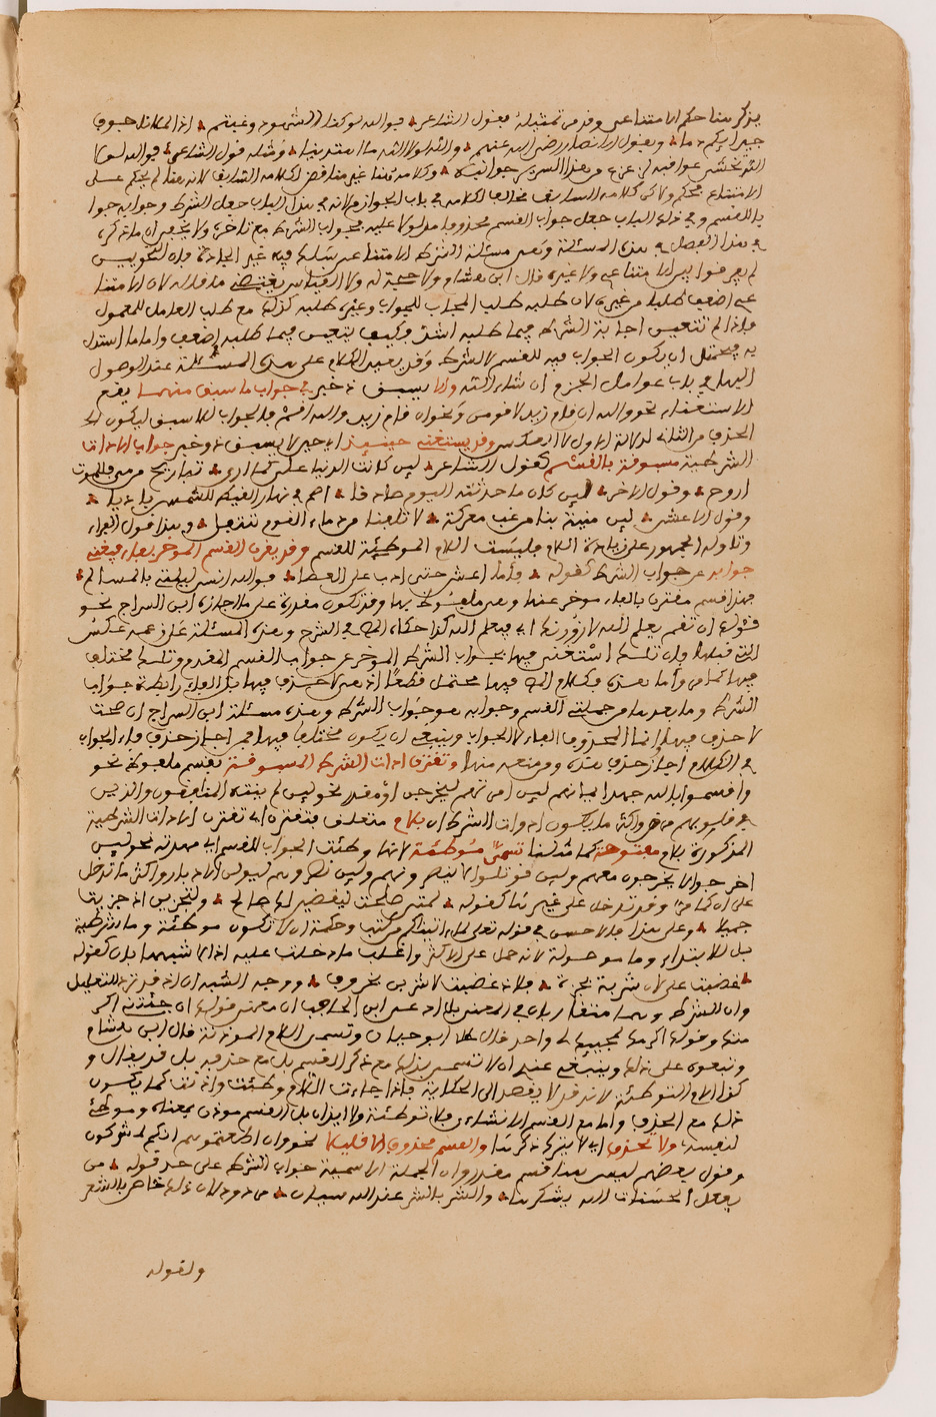 يذكر هنا حكم الامتناعي وقد من تمثيله بقول الشاعر فوالله لو كنا الشهود وغبتم اذا لملأنا جوف
جيرانكم دما وبقول الانصار رضي الله عنهم والله لولا الله ما اهتدينا ومثله قول الشاعر فوالله لولا
الله تخشى عواقبه لزعزع من هذا السرير جوانبه وكلامه هنا غير مناقض لكلامه السابق لانه هنا لم يحكم على
الامتناعي بحكم ولاكن كلامه السابق مخالف لكلامه في باب الجوازم لانه في هذا الباب جعل الشرط وجوابه جوا
با للقسم وفي ذلك الباب جعل جواب القسم محذوفا مدلولا عليه بجواب الشرط مع تاخره ولا يخفى ان ما ذكره
في هذا الفصل في هذه المسئلة وهي مسئلة الشرط الامتناعي
لم يفرقوا بين الامتناعي ولا غيره قال ابن هشام ولا حجة له ولا القياس يقتضي ما قاله لان الامتنا
عي اضعف طلبا من غيره لان طلبه طلب المجاب للجواب وغيره طلبه كذلك مع طلب العامل للمعمول
فاذا لم تتعين اجابة الشرط فيما طلبه اشد فكيف يتعين فيما طلبه اضعف واما ما استدل
به فيحتمل ان يكون الجواب فيه للقسم لا للشرط وقد يعيد الكلام على هذه المسئلة عند الوصول
اليها في باب عوامل الجزم ان شاء الله وان يسبق ذو خبر في جواب ما سبق منهما يقع
الاستغناء نحو والله ان قام زيد لاقومن ونحو ان قام زيد والله اقم فالجواب للاسبق ليكون الـ
الحذف من الثاني لدلالة الاول لا العكس وقد يستغنى حينئذ اي حين لا يسبق ذو خبر بجواب الادات
الشرطية مسبوقة بالقسم كقول الشاعر لئن كانت الدنيا علي كما ارى تباريح من مي فللموت
اروح وقول الاخر لئن كان ما حدثته اليوم صادقا اصم في نهار القيظ للشمس باديا
وقول الاعشى لئن منيت بنا عن غب معركة لا تلفنا عن دماء القوم ننتفل وهذا قول الفراء
وتاوله الجمهور على زيادة اللام فليست اللام الموطئة للقسم وقد يقرن القسم المؤخر بفاء فيغني
جوابه عن جواب الشرط كقوله فاما اعش حتى ادب على العصا فوالله انسى ليلتي بالمسالم
فهذا قسم مقترن بالفاء مؤخر عنها وهي ملفوظ بها وقد تكون مقدرة على ما اجازه ابن السراج نحو
قولك ان تقم يعلم الله لازورنك اي فيعلم الله كذا حكاه في الشرح وهذه المسئلة على زعمه عكس
التي قبلها فان تلك استغني فيها بجواب الشرط المؤخر عن جواب القسم المقدم وتلك مختلف
فيها كما من واما هذه فكلام فيها محتمل قطعا اذ هي لا حذف فيها بل الفاء رابطة جواب
الشرط وما بعدها من جملتي القسم وجوابه هو جواب الشرط وهذه مسئلة ابن السراج ان صحت
لا حذف فيها انما المحذوف الفاء لا الجواب وينبغي ان يكون مختلفا فيها فمن اجاز حذف فاء الجواب
في الكلام اجاز حذف هذه ومن منعه منعها وتقترن ادات الشرط المسبوقة بقسم ملفوظ نحو
واقسموا بالله جهد ايمانهم لئن امرتهم ليخرجن او مقدر نحو لئن لم ينته المنافقون والذين
في قلوبهم مرض واكثر ما يكون ادوات الشرط ان بلام متعلق بتقترن اي تقترن ادات الشرطية
المذكورة بلام مفتوحة كما مثلنا تسمى موطئة لانها وطئت الجواب للقسم اي مهدته نحو لئن
اخرجوا لا يخرجون معهم ولئن قوتلوا لا ينصرونهم ولئن نصروهم ليولن الادبار واكثر ما تدخل
على ان كما من وقد تدخل على غيرها كقوله لمتى صلحت ليقضين لك صالح ولتجزين اذا جزيت
جميلا وعلى هذا فالاحسن في قوله تعلى لما اتيتكم من كتاب وحكمة ان لا تكون موطئة وما شرطية
بل للابتداء وما موصولة لانه حمل على الاكثر واغلب ما دخلت عليه اذ لما شبهها بان كقوله
غضبت علي لان شربت بجزة فلاذ غضبت لاشربن بخروف ووجه الشبه ان اذ قد ترد للتعليل
وان للشرط وهما متقاربان في المعنى بل ادعى ابن الحاجب ان معنى قولك ان جئتني اكر
متك وقولك اكرمك لمجيئك لي واحد قال ابو حيان وتسمى اللام الموذنة قال ابن هشام
وتبعوه على ذلك وينبغي عندي ان لا تسمى بذلك مع ذكر القسم بل مع حذفه بل قد يقال و
كذا لام التوطئة لانه قد لا يقصد الى الحكاية فاذا جاءت اللام وطئت واذنت كما يكون
ذلك مع الحذف واما مع القسم الانشاءي فلا توطئة ولا ايذان بل القسم موذن بمعناه وموطئ
لنفسه ولا تحذف اي لا يترك ذكرها والقسم محذوف الا قليلا نحو وان اطعتموهم انكم لمشركون
وقول بعضهم ليس هنا قسم مقدر وان الجملة الاسمية جواب الشرط على حد قوله من
يفعل الحسنات الله يشكرها والشر بالشر عند الله سيان مردود لان ذلك خاص بالشعر
ولقوله